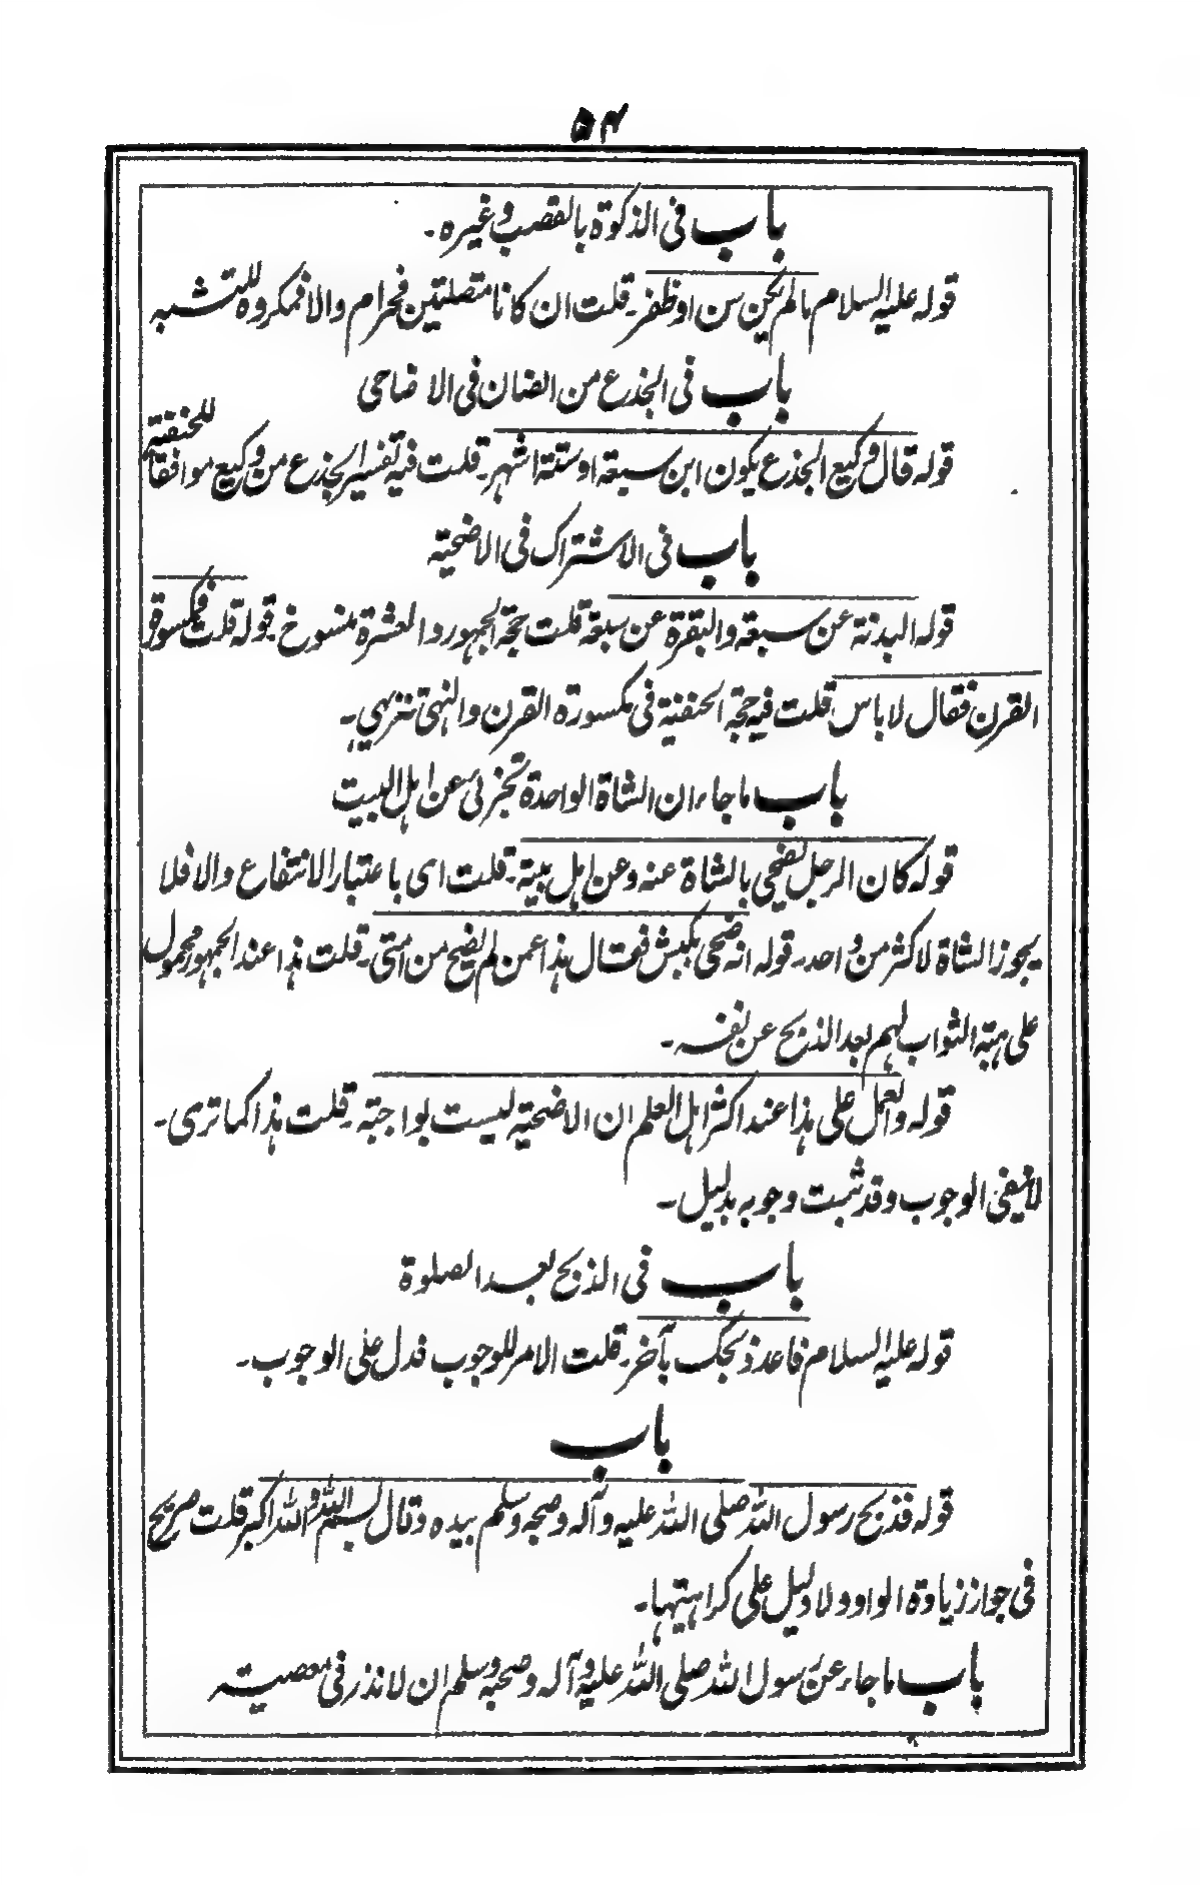 ۵۴
باب فی الذکوة بالقصب وغیره۔
قوله علیه السلام مالم یکن سن او ظفر۔ قلت ان کانا متصلتین فحرام والا فمکروه للتشبه
باب فی الجذع من الضان فی الاضاحی
قوله قال وکیع الجذع یکون ابن سبعة او ستة اشهر۔ قلت فیه تفسیر الجذع من وکیع موافقا للحنفیة
باب فی الاشتراک فی الاضحیة
قوله البدنة عن سبعة والبقرة عن سبعة قلت حجة الجمهور والعشرة منسوخ۔ قوله قلت فمکسورة
القرن فقال لاباس قلت فیه حجة الحنفیة فی مکسورة القرن والنهی تنزیهی۔
باب ماجاء ان الشاة الواحدة تجزئ عن اهل البیت
قوله کان الرجل یضحی بالشاة عنه وعن اهل بیته۔ قلت ای باعتبار الانتفاع والا فلا
یجوز الشاة لاکثر من واحد۔ قوله انه ضحی بکبش فقال هذا عمن لم یضح من امتی۔ قلت هذا عند الجمهور محمول
علی هبة الثواب لهم بعد الذبح عن نفسه۔
قوله والعمل علی هذا عند اکثر اهل العلم ان الاضحیة لیست بواجبة۔ قلت هذا کما تری۔
لاینفی الوجوب وقد ثبت وجوبه بدلیل۔
باب فی الذبح بعد الصلوة
قوله علیه السلام فاعد ذبحک بآخر۔ قلت الامر للوجوب فدل علی الوجوب۔
باب
قوله فذبح رسول الله صلی الله علیه وآله وصحبه وسلم بیده وقال بسم الله والله اکبر قلت صریح
فی جواز زیادة الواو ولا دلیل علی کراهیتها۔
باب ماجاء عن رسول الله صلی الله علیه وآله وصحبه وسلم ان لا نذر فی معصیة